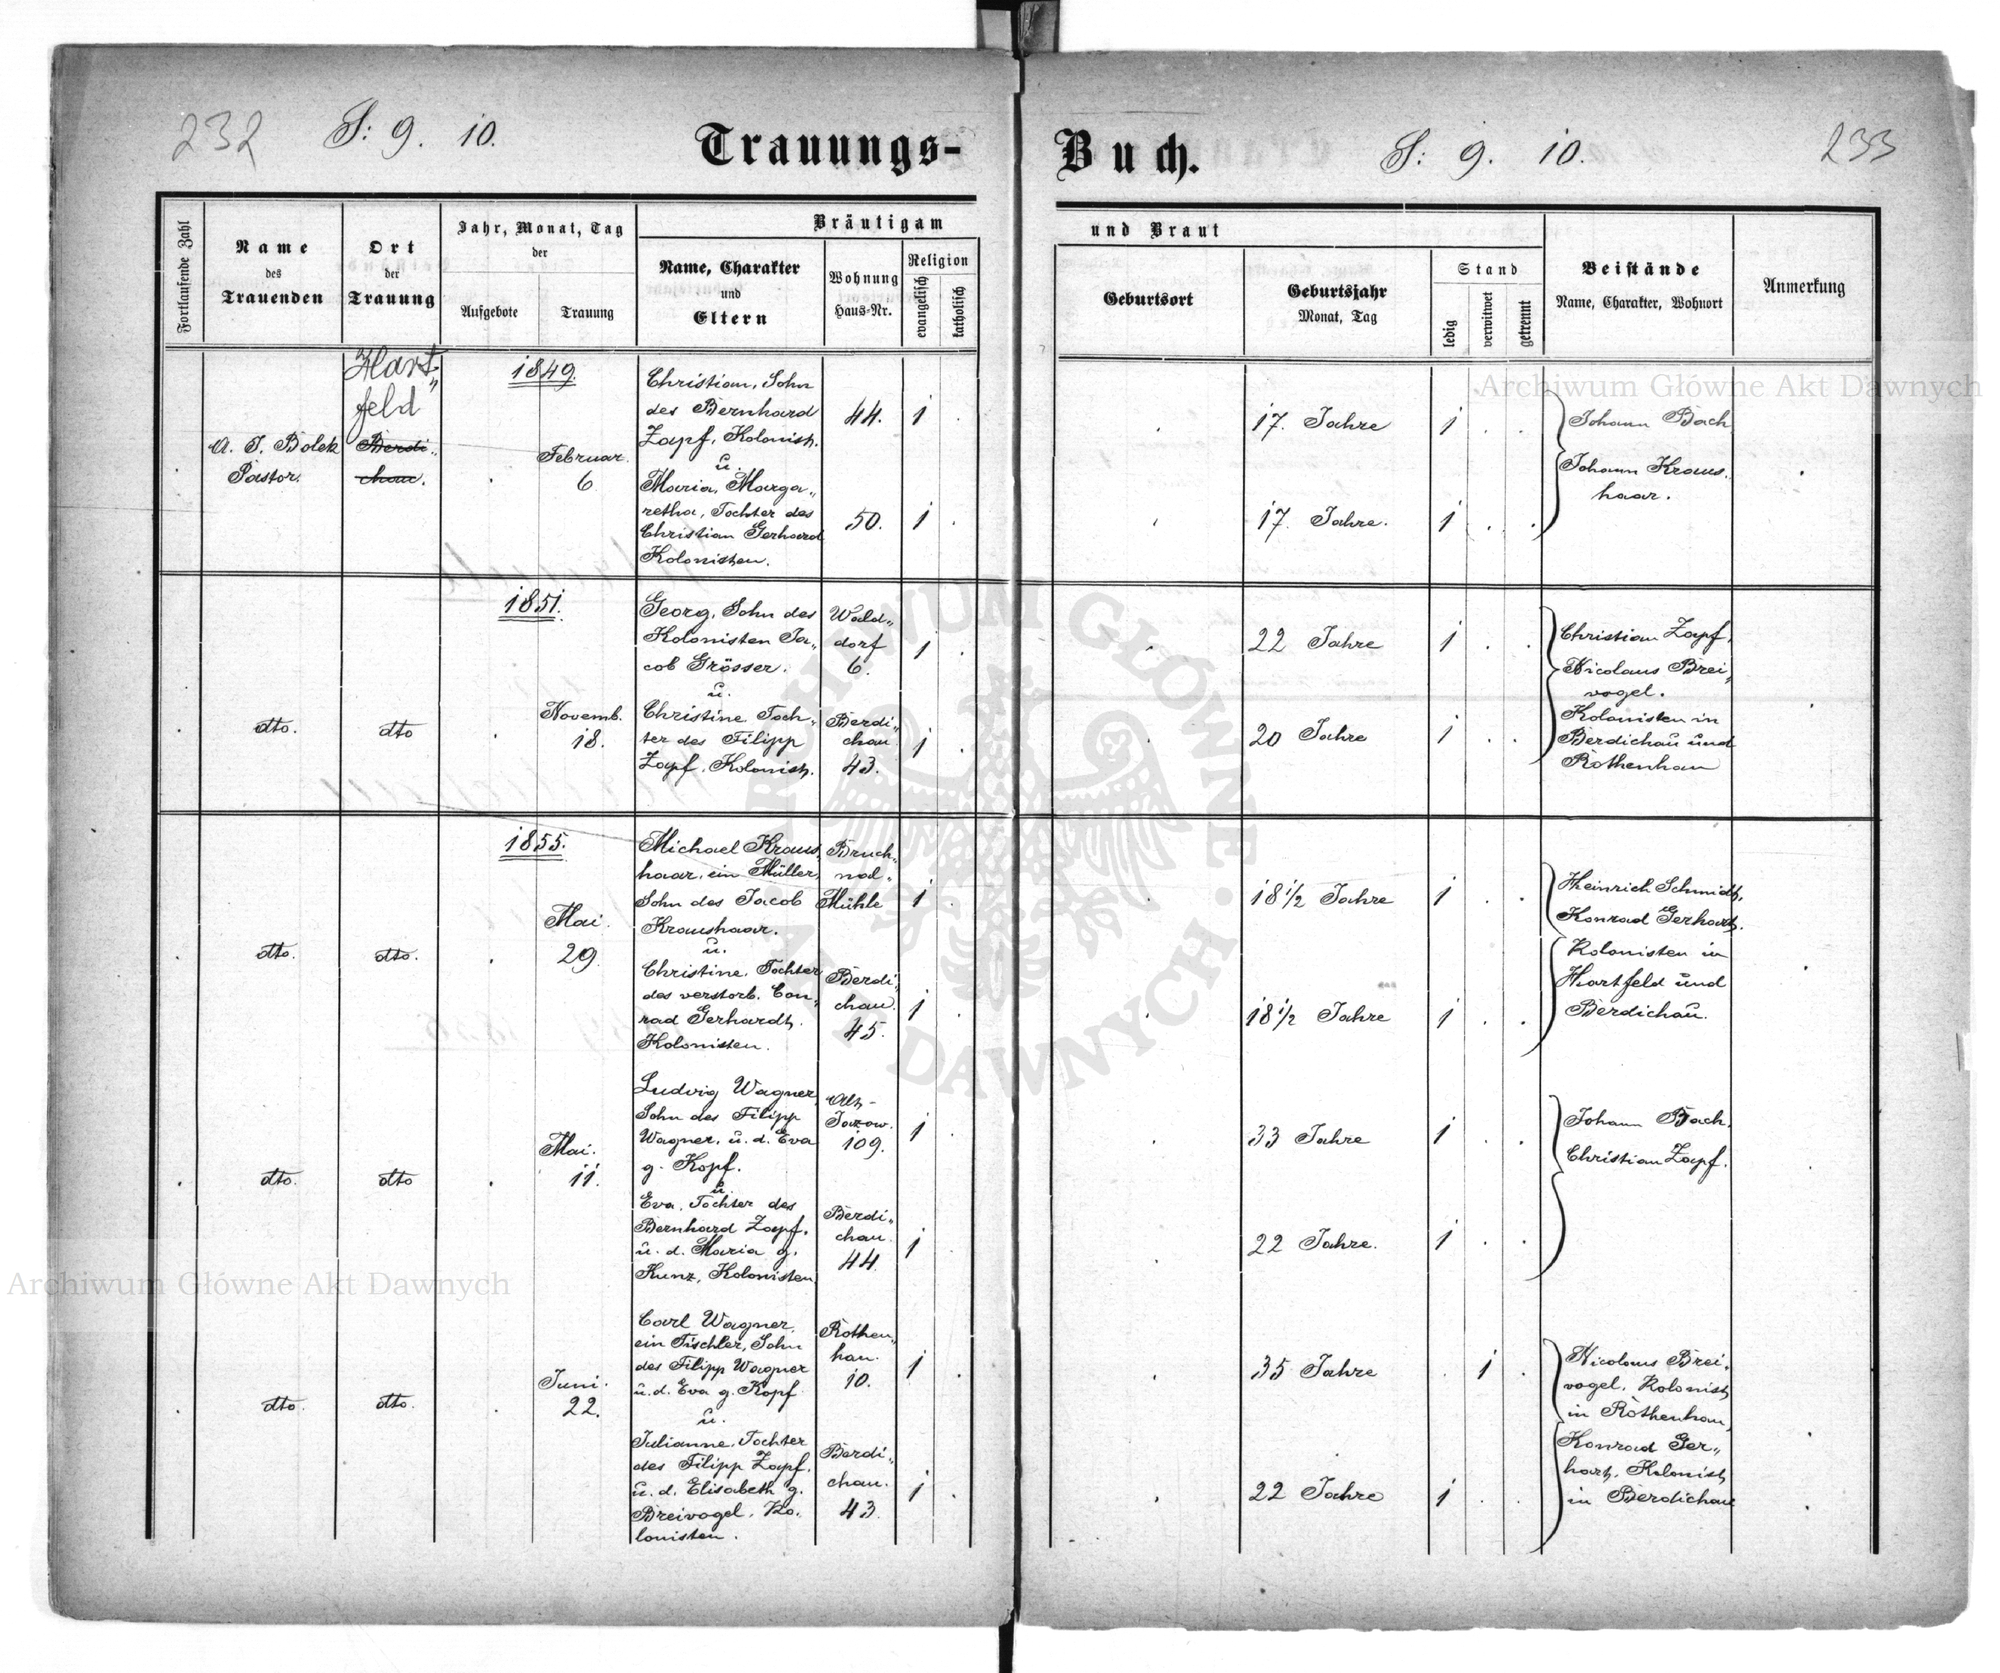 232
S: 9. 10.
Trauungs-
Buch.
S: 9. 10.
233
Fortlaufende Zahl
Name
des
Trauenden
Ort
der
Trauung
Jahr, Monat, Tag
der
Aufgebote
Trauung
Bräutigam
Name, Charakter
und
Eltern
Wohnung
Haus-Nr.
Religion
evangelisch
katholisch
und Braut
Geburtsort
Geburtsjahr
Monat, Tag
Stand
ledig
verwitwet
getrennt
Beistände
Name, Charakter, Wohnort
Anmerkung
A. J. Bolek
Pastor.
Hart„
feld
Berdi„
chau.
1849.
Februar.
6
Christian, Sohn
des Bernhard
Zapf, Kolonist.
u.
Maria, Marga„
retha, Tochter des
Christian Gerhard
Kolonisten.
44.
50.
1
1
17. Jahre
17. Jahre.
1
1
Johann Bach
Johann Kraus„
haar.
dto.
dto
1851.
Novemb.
18.
Georg, Sohn des
Kolonisten Ja„
cob Grösser.
u.
Christine Toch„
ter des Filipp
Zapf, Kolonist.
Wald„
dorf
6.
Berdi„
chau
43.
1
1
22 Jahre
20 Jahre
1
1
Christian Zapf,
Nicolaus Brei„
vogel.
Kolonisten in
Berdichau und
Rothenhan
dto.
dto.
1855.
Mai.
29
Michael Kraus„
haar, ein Müller,
Sohn des Jacob
Kraushaar.
u.
Christine, Tochter
des verstorb. Con„
rad Gerhardt,
Kolonisten.
Bruch„
nal„
Mühle
Berdi„
chau
45.
1
1
18 1/2 Jahre
18 1/2 Jahre
1
1
Heinrich Schmidt,
Konrad Gerhart.
Kolonisten in
Hartfeld und
Berdichau.
dto.
dto
Mai.
11.
Ludvig Wagner,
Sohn des Filipp
Wagner, u. d. Eva
g. Kopf.
u.
Eva, Tochter des
Bernhard Zapf.
u. d. Maria g.
Kunz, Kolonisten
Alt-
Jazow.
109.
Berdi„
chau.
44.
1
1
33 Jahre
22 Jahre.
1
1
Johann Bach.
Christian Zapf.
dto.
dto.
Juni.
22.
Carl Wagner,
ein Tischler, Sohn
des Filipp Wagner
u. d. Eva g. Kopf
u.
Julianne, Tochter
des Filipp Zapf,
u. d. Elisabeth g.
Breivogel, Ko„
lonisten.
Rothen„
han.
10.
Berdi„
chau.
43.
1
1
35 Jahre
22 Jahre
1
1
Nicolaus Brei„
vogel, Kolonist
in Rothenhan,
Konrad Ger„
hart, Kolonist
in Berdichau
Archiwum Główne Akt Dawnych
Archiwum Główne Akt Dawnych
ARCHIWUM GŁÓWNE AKT DAWNYCH